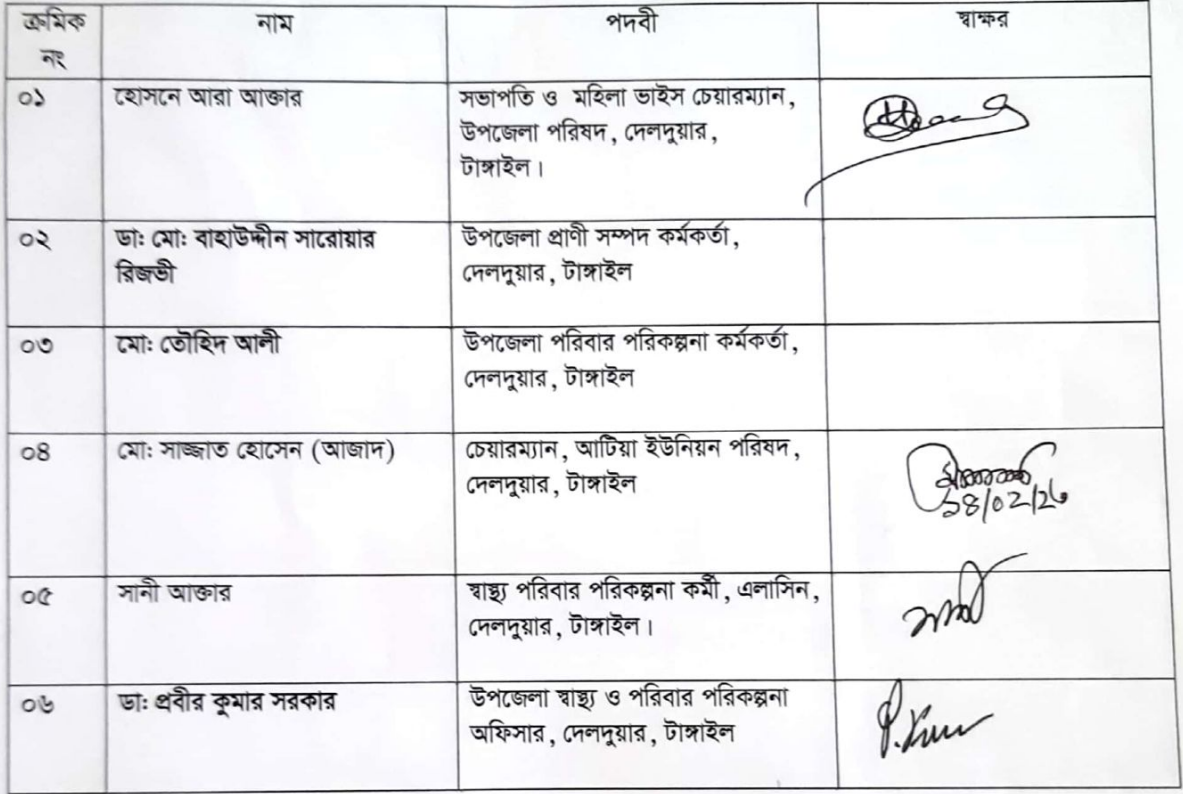 ক্রমিক নং নাম পদবী স্বাক্ষর
০১ হোসনে আরা আক্তার সভাপতি ও মহিলা ভাইস চেয়ারম্যান,
উপজেলা পরিষদ, দেলদুয়ার,
টাঙ্গাইল।
০২ ডা: মো: বাহাউদ্দীন সারোয়ার রিজভী উপজেলা প্রাণী সম্পদ কর্মকর্তা,
দেলদুয়ার, টাঙ্গাইল
০৩ মো: তৌহিদ আলী উপজেলা পরিবার পরিকল্পনা কর্মকর্তা,
দেলদুয়ার, টাঙ্গাইল
০৪ মো: সাজ্জাত হোসেন (আজাদ) চেয়ারম্যান, আটিয়া ইউনিয়ন পরিষদ,
দেলদুয়ার, টাঙ্গাইল
০৫ সানী আক্তার স্বাস্থ্য পরিবার পরিকল্পনা কর্মী, এলাসিন,
দেলদুয়ার, টাঙ্গাইল।
০৬ ডা: প্রবীর কুমার সরকার উপজেলা স্বাস্থ্য ও পরিবার পরিকল্পনা
অফিসার, দেলদুয়ার, টাঙ্গাইল